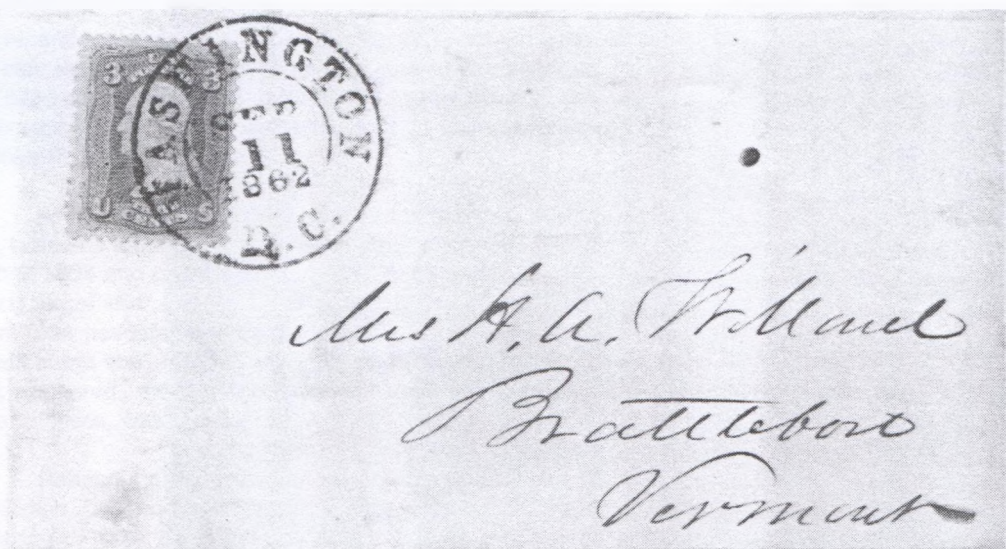 WASHINGTON
SEP
11
1862
D.C.
3 3
U S
Mrs H. A. Willard
Brattleboro
Vermont